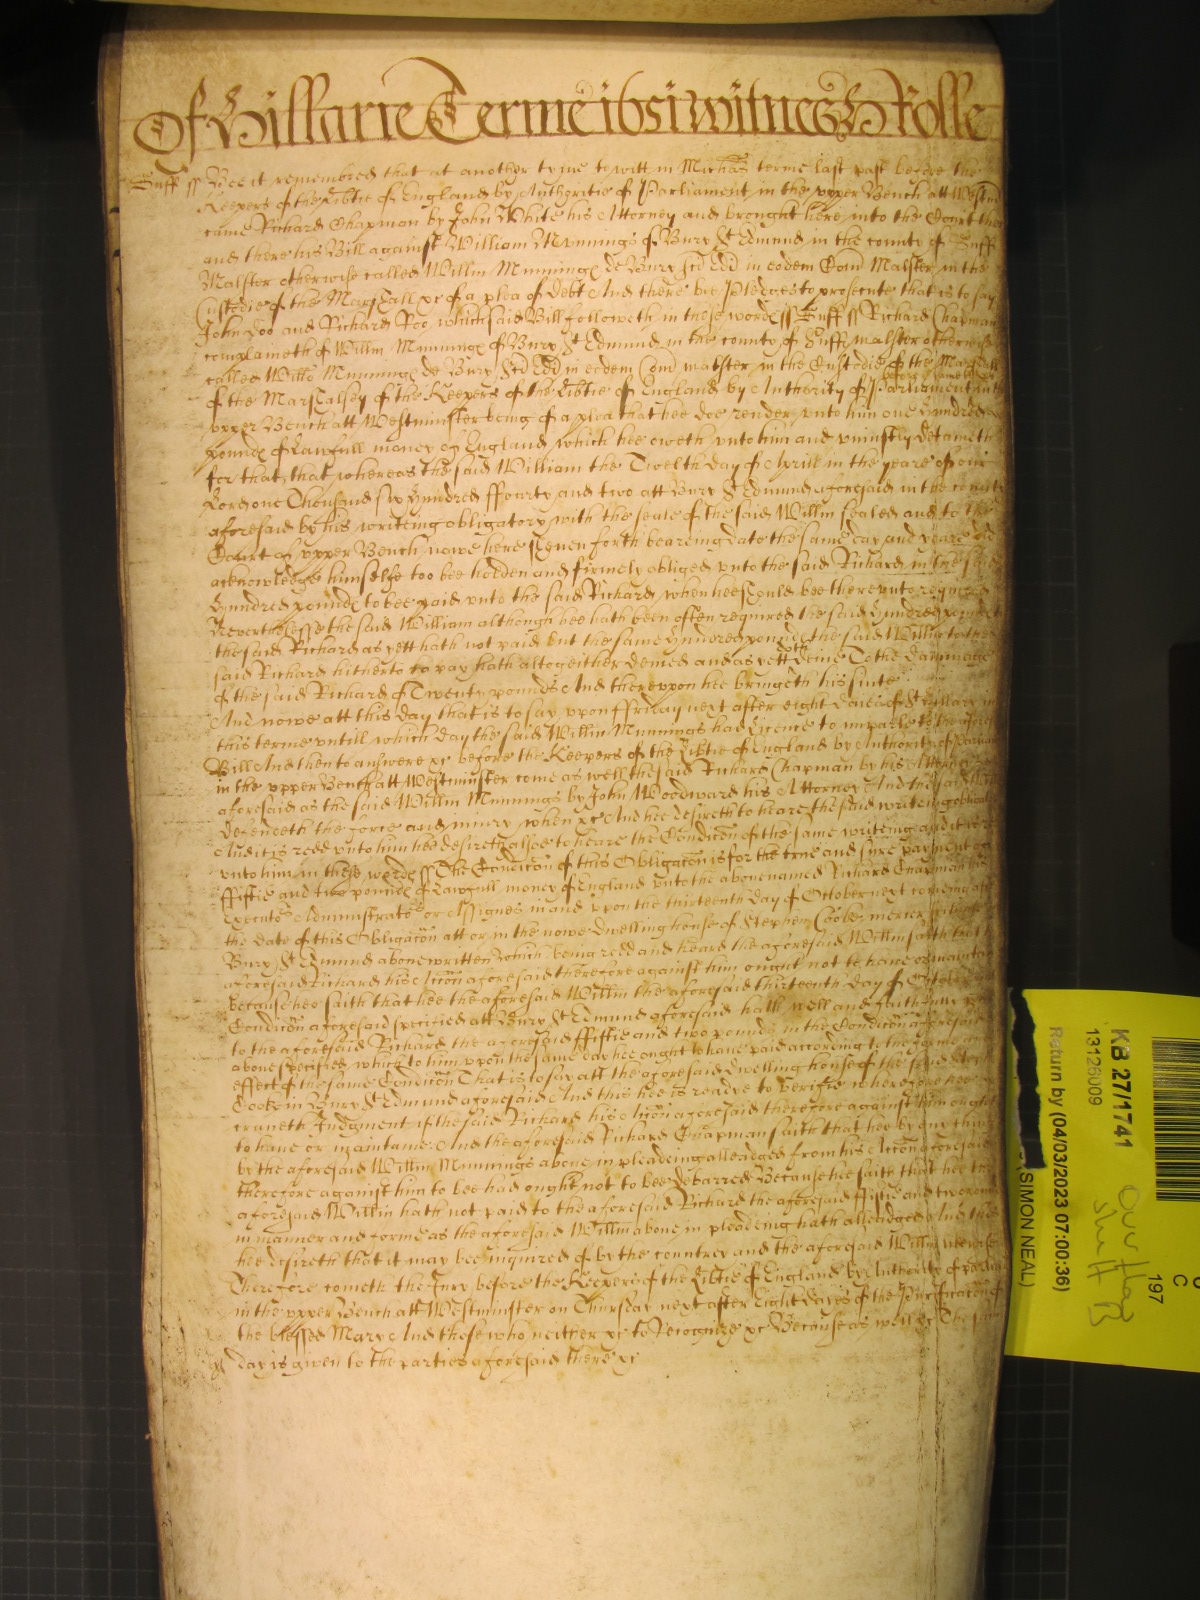 Of Hillarie Terme 1651 Witnes H Rolle
Suff ss Bee it remembred that at another tyme to witt in Michās terme last past before the
Keepers of the Libtie of England by Authoritie of Parliament in the upper Bench att Westm
came Richard Chapman by John White his Attorney and brought here into the Court then
and there his Bill against William Munnings of Bury St Edmund in the county of Suff
Malster otherwise called Willm Munnings de Bury Scī Edd in eodem Com Malster in the
Custodie of the Marshall xc of a plea of Debt And there bee Pledges to prosecute that is to say
John Doo and Richard Roo which said Bill followeth in these words ss Suff ss Richard Chapman
complaineth of Willm Munnings of Bury St Edmund in the county of Suff malster otherwise
called Willm Munnings de Bury Scī Edd in eodem Com malster in the Custodie of the Marshall
of the Marshalsey of the Keepers of the Libtie of England by Authority of Parliament in the
upper Bench att Westminster being of a plea that hee doe render unto him one Hundred
pounds of Lawfull money of England which hee oweth unto him and uniustly detaineth
for that, that whereas the said William the Twelth day of Aprill in the yeare of our
Lord one Thousand six Hundred ffourty and two att Bury St Edmund aforesaid in the county
aforesaid by his writeing obligatory with the seale of the said Willm sealed and to the
Court of upper Bench nowe here shewen forth beareing date the same day and yeare did
acknowledge himselfe too bee holden and firmely obliged unto the said Richard in the said
Hundred pounds to bee paid unto the said Richard when hee should bee thereunto required
Neverthelesse the said William although hee hath been often required the said Hundred pounds
the said Richard as yett hath not paid but the same Hundred pounds the said Willm to the
said Richard hitherto to pay hath altogeither denied and as yett doth denie To the dammage
of the said Richard of Twenty pounds And thereupon hee bringeth his suite
And nowe att this day that is to say upon ffriday next after eight dayes of St Hillary in
this terme untill which day the said Willm Munnings had Licence to imparle to the aforesaid
Bill And then to answere xc before the Keepers of the Libtie of England by Authority of Parliam
in the upper Bench att Westminster come as well the said Richard Chapman by his Attorney
aforesaid as the said Willm Munnings by John Woodward his Attorney And the said Willm
defendeth the force and iniury when xc And hee desireth to heare the said writeing obligatory
And it is redd unto him hee desireth alsoe to heare the Condicōn of the same writeing and it is redd
unto him in these words ss The Condicōn of this Obligacōn is for the true and sure payment of
ffiftie and two pounds of Lawfull money of England unto the abovenamed Richard Chapman his
Executors Administrators or Assignes in and upon the thirteenth day of October next comeing after
the date of this Obligacōn att or in the nowe dwelling house of Stephen Cooke mercer in
Bury St Edmund abovewritten which being redd and heard the aforesaid Willm saith that the
aforesaid Richard his Accōn aforesaid therefore against him ought not to have or maintaine
because hee saith that hee the aforesaid Willm the aforesaid thirteenth day of October in the
Condicōn aforesaid specified att Bury St Edmund aforesaid hath well and faithfully paid
to the aforesaid Richard the aforesaid ffiftie and two pounds in the Condicōn aforesaid
above specified which to him upon the same day hee ought to have paid according to the forme and
effect of the same Condicōn That is to say att the aforesaid dwelling house of the said Stephen
Cooke in Bury St Edmund aforesaid And this hee is readye to verifie wherefore hee
craveth Judgment if the said Richard his Accōn aforesaid therefore against him ought
to have or maintaine And the aforesaid Richard Chapman saith that hee by any thing
by the aforesaid Willm Munnings above in pleadeing alleadged from his Accōn aforesaid
therefore against him to bee had ought not to bee debarred Because hee saith that hee the
aforesaid Willm hath not paid to the aforesaid Richard the aforesaid ffiftie and two pounds
in manner and forme as the aforesaid Willm above in pleadeing hath alleadged And this
hee desireth that it may bee inquired of by the countrey and the aforesaid Willm likewise
Therefore cometh the Jury before the Keepers of the Libtie of England by Authority of Parliam
in the upper Bench att Westminster on Thursday next after Eight dayes of the Purificacōn of
the blessed Mary And those who neither xc to Recognize xc Because as well xc The same
day is given to the parties aforesaid there xc
KB 27/1741
13126009
Return by (04/03/2023 07:00:36)
(SIMON NEAL)
C
197